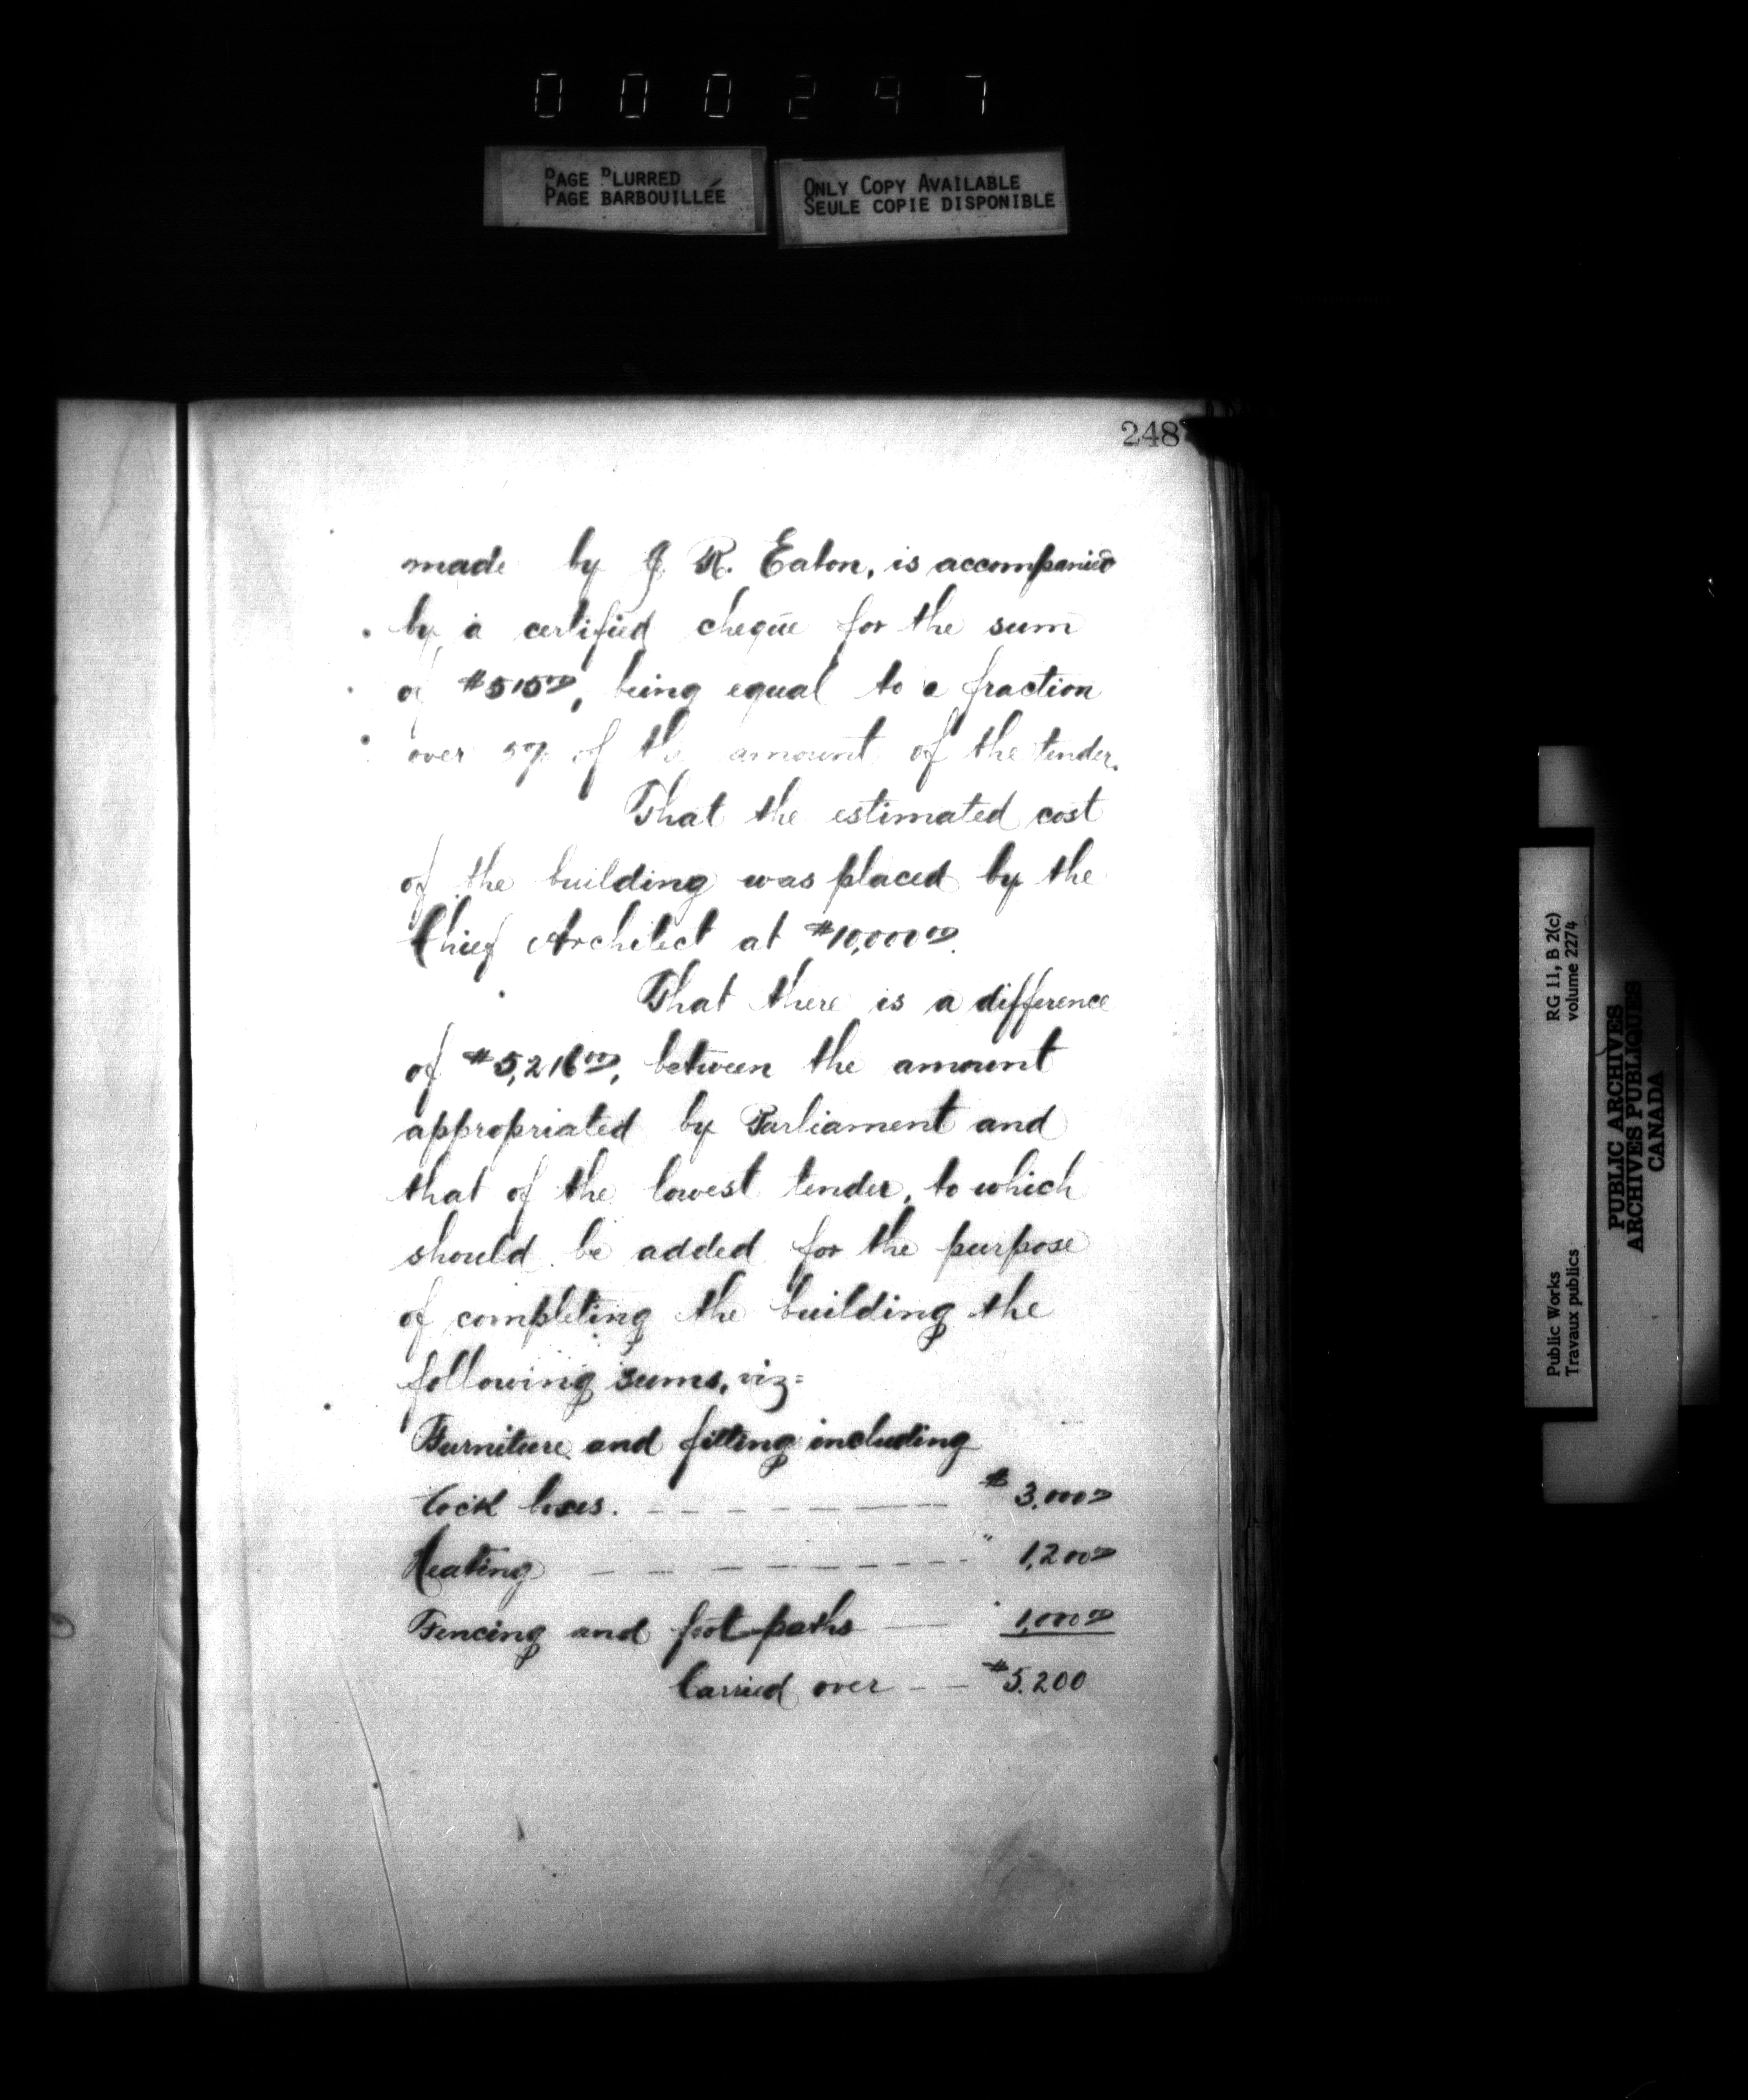 000297
PAGE BLURRED
PAGE BARBOUILLÉE
ONLY COPY AVAILABLE
SEULE COPIE DISPONIBLE
248
made by J. R. Eaton, is accompanied
by a certified cheque for the sum
of $515.00, being equal to a fraction
over 5% of the amount of the tender.
That the estimated cost
of the building was placed by the
Chief Architect at $10,000.00.
That there is a difference
of $5,216.00, between the amount
appropriated by Parliament and
that of the lowest tender, to which
should be added for the purpose
of completing the building the
following sums, viz=
Furniture and fitting including
Lock boxes. - - - - - - - $ 3,000.00
Heating - - - - - - - - - " 1,200.00
Fencing and foot-paths - - " 1,000.00
Carried over - - $5.200
Public Works
Travaux publics
RG 11, B 2(c)
volume 2274
PUBLIC ARCHIVES
ARCHIVES PUBLIQUES
CANADA